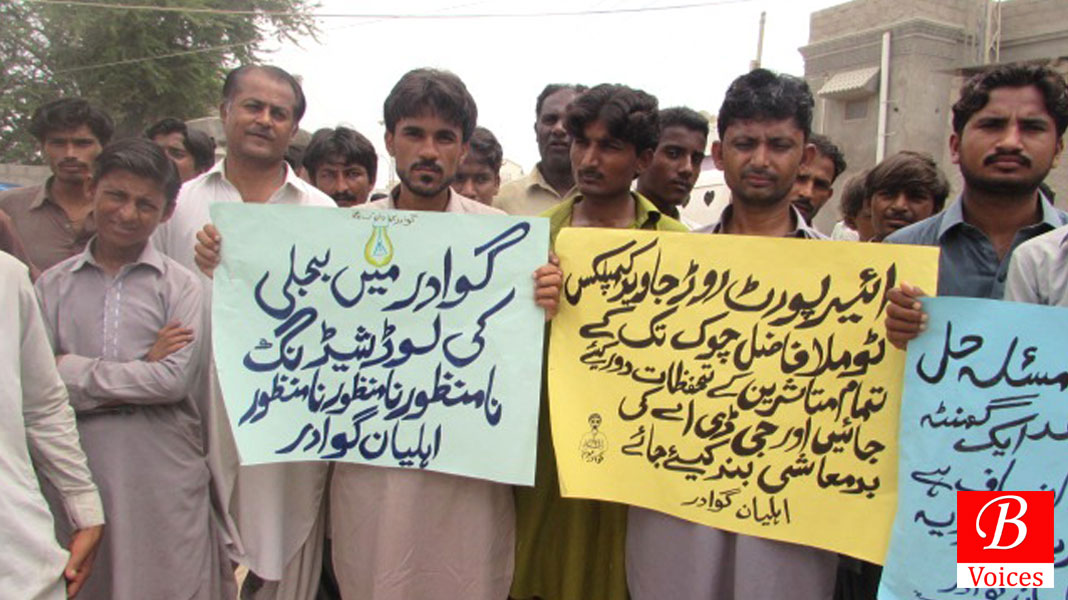 گوادر میں بجلی
کی لوڈ شیڈنگ
نامنظور نامنظور نامنظور
اہلیان گوادر
ائیرپورٹ روڑ جاوید کمپلکس
ٹو ملا فاضل چوک تک کے
تمام متاثرین کے تحفظات دور کیئے
جائیں اور جی ڈی اے کی
بدمعاشی بند کیئے جائے
اہلیان گوادر
مسئلہ حل
گھنٹہ
ایک
ہے
B
Voices